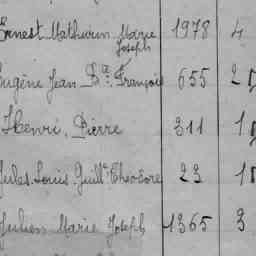 Ernest Mathurin Marie Joseph 1978 4
Eugène Jean Bte François 655 2
Henri, Pierre 311 1
Jules Louis Guill. Théodore 23 1
Julien Marie Joseph 1365 3